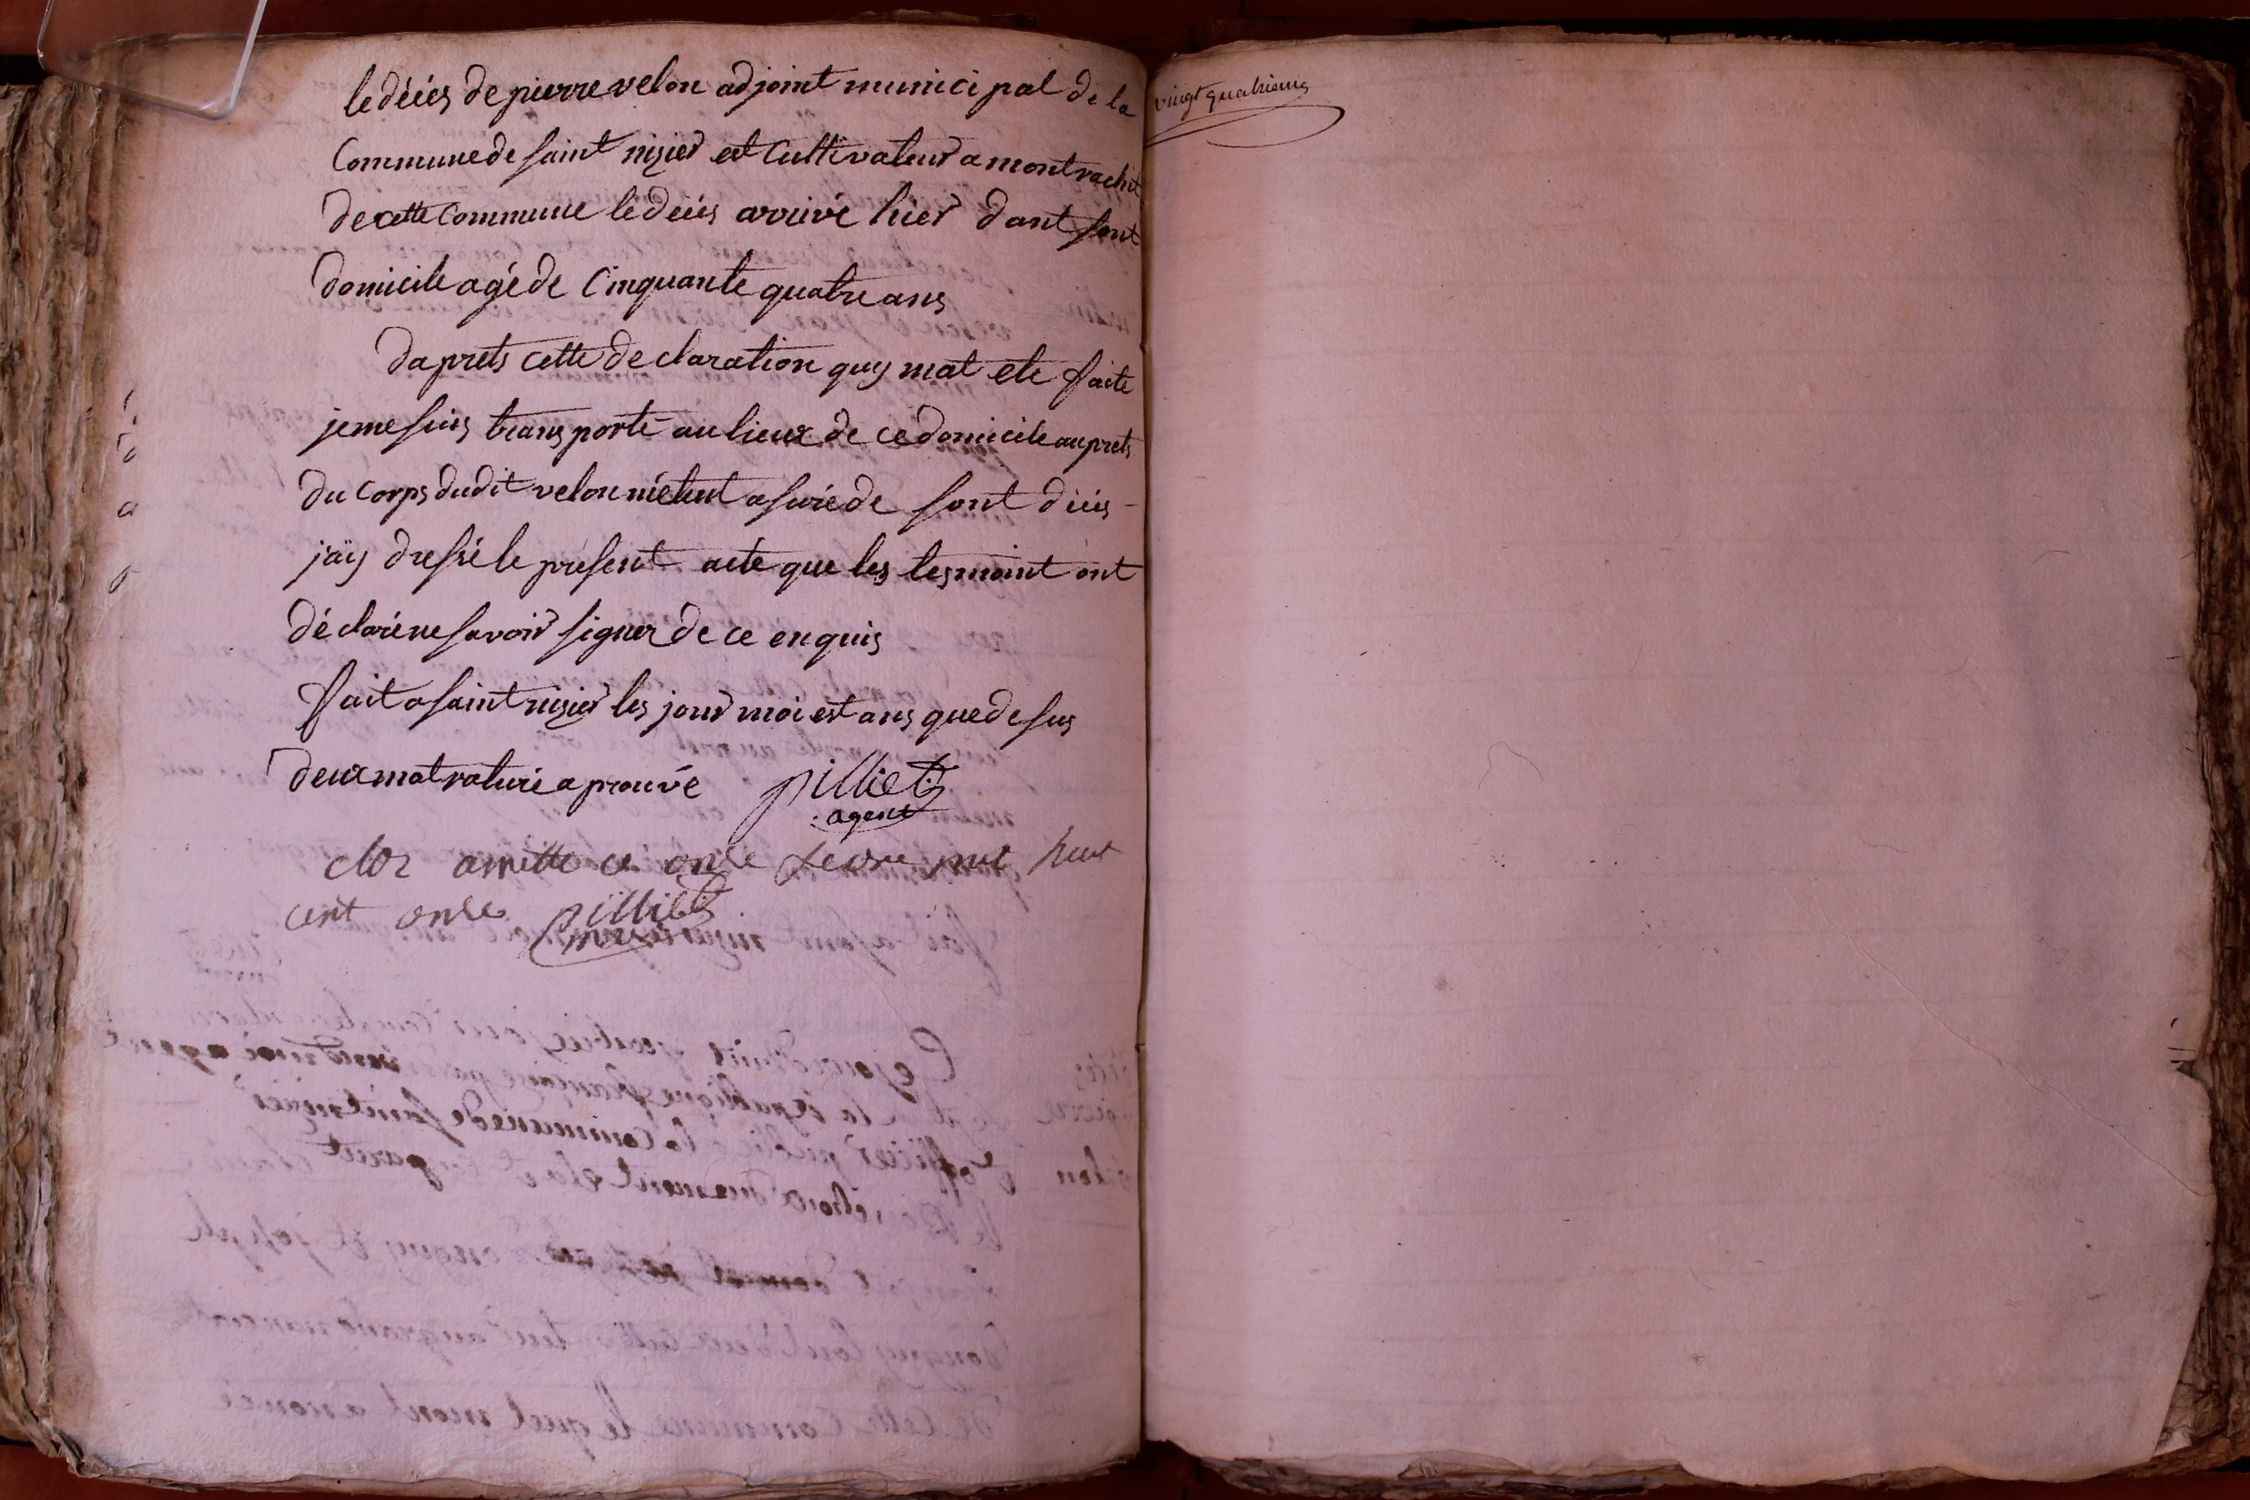 le déces de pierre velon adjoint municipal de la
Commune de saint nizier et Cultivateur a montrachit
de cette Commune le déces arrivé hier dant sont
domicile agé de Cinquante quatre ans
daprets cette declaration quy mat ete faite
je me suis transporté au lieux de ce domicile auprets
du Corps dudit velon métent asuré de sont décés
jäy dressé le présent acte que les tesmoint ont
déclaré ne savoir signer de ce enquis
fait a saint nizier les jour moi est ans que desus
deux mat raturé aprouvé pilliet
agent
cloz arrette ce onse fevre mil huit
cent onse pilliet
vingt quatrieme